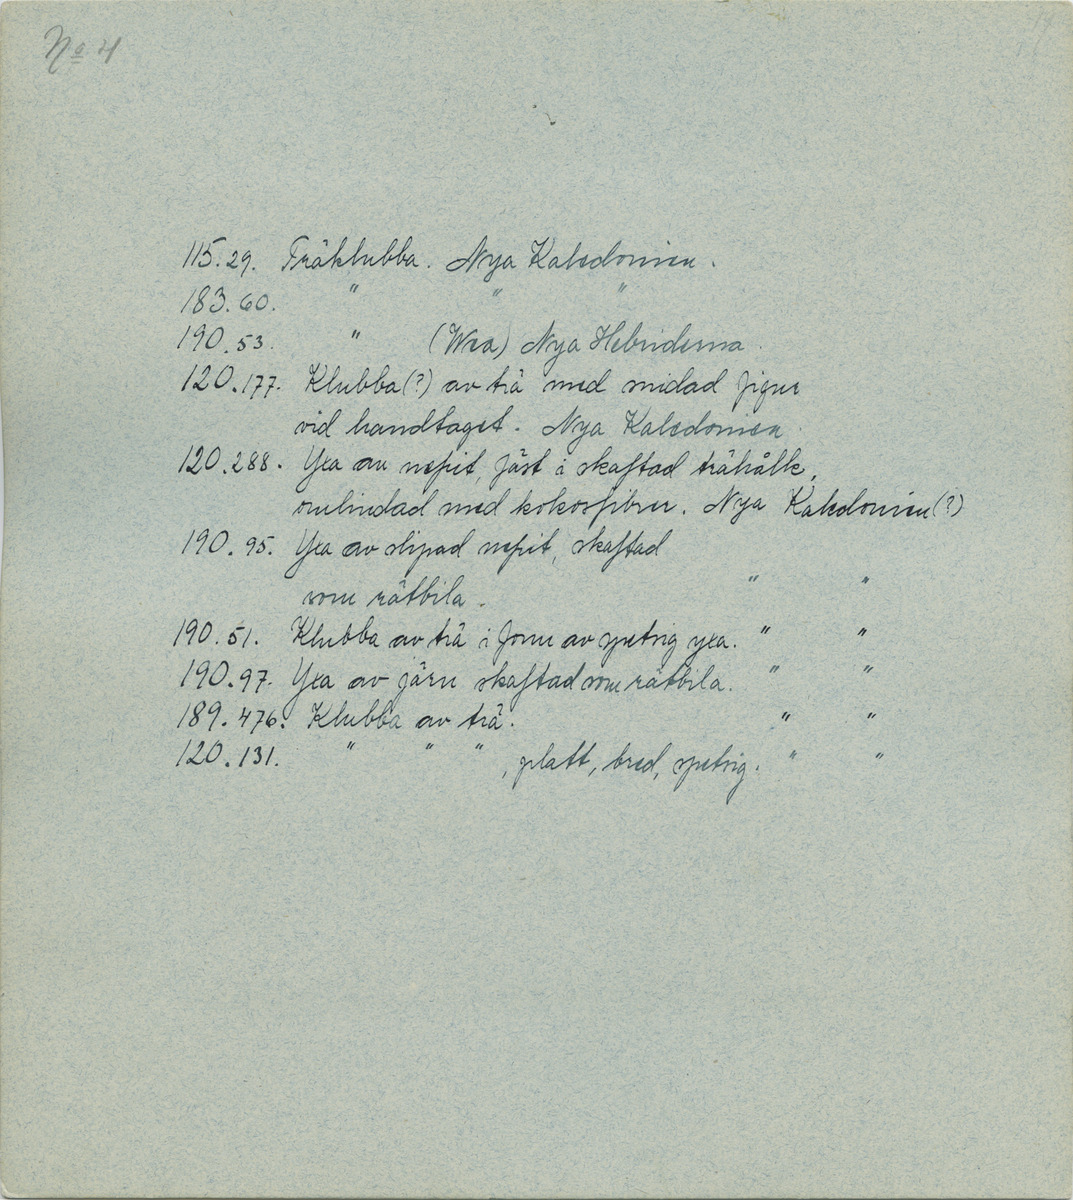 No 4
115.29. Träklubba. Nya Kaledonien.
183.60. " " "
190.53. " (Wea) Nya Hebriderna.
120.177. Klubba(?) av trä med snidad figur
vid handtaget. Nya Kaledonien.
120.288. Yxa av nefrit, fäst i skaftad trähålk,
omlindad med kokosfibrer. Nya Kaledonien(?)
190.95. Yxa av slipad nefrit, skaftad
som rätbila. " "
190.51. Klubba av trä i form av spetsig yxa. " "
190.97. Yxa av järn skaftad som rätbila. " "
189.476. Klubba av trä. " "
120.131. " " ", platt, bred, spetsig. " "